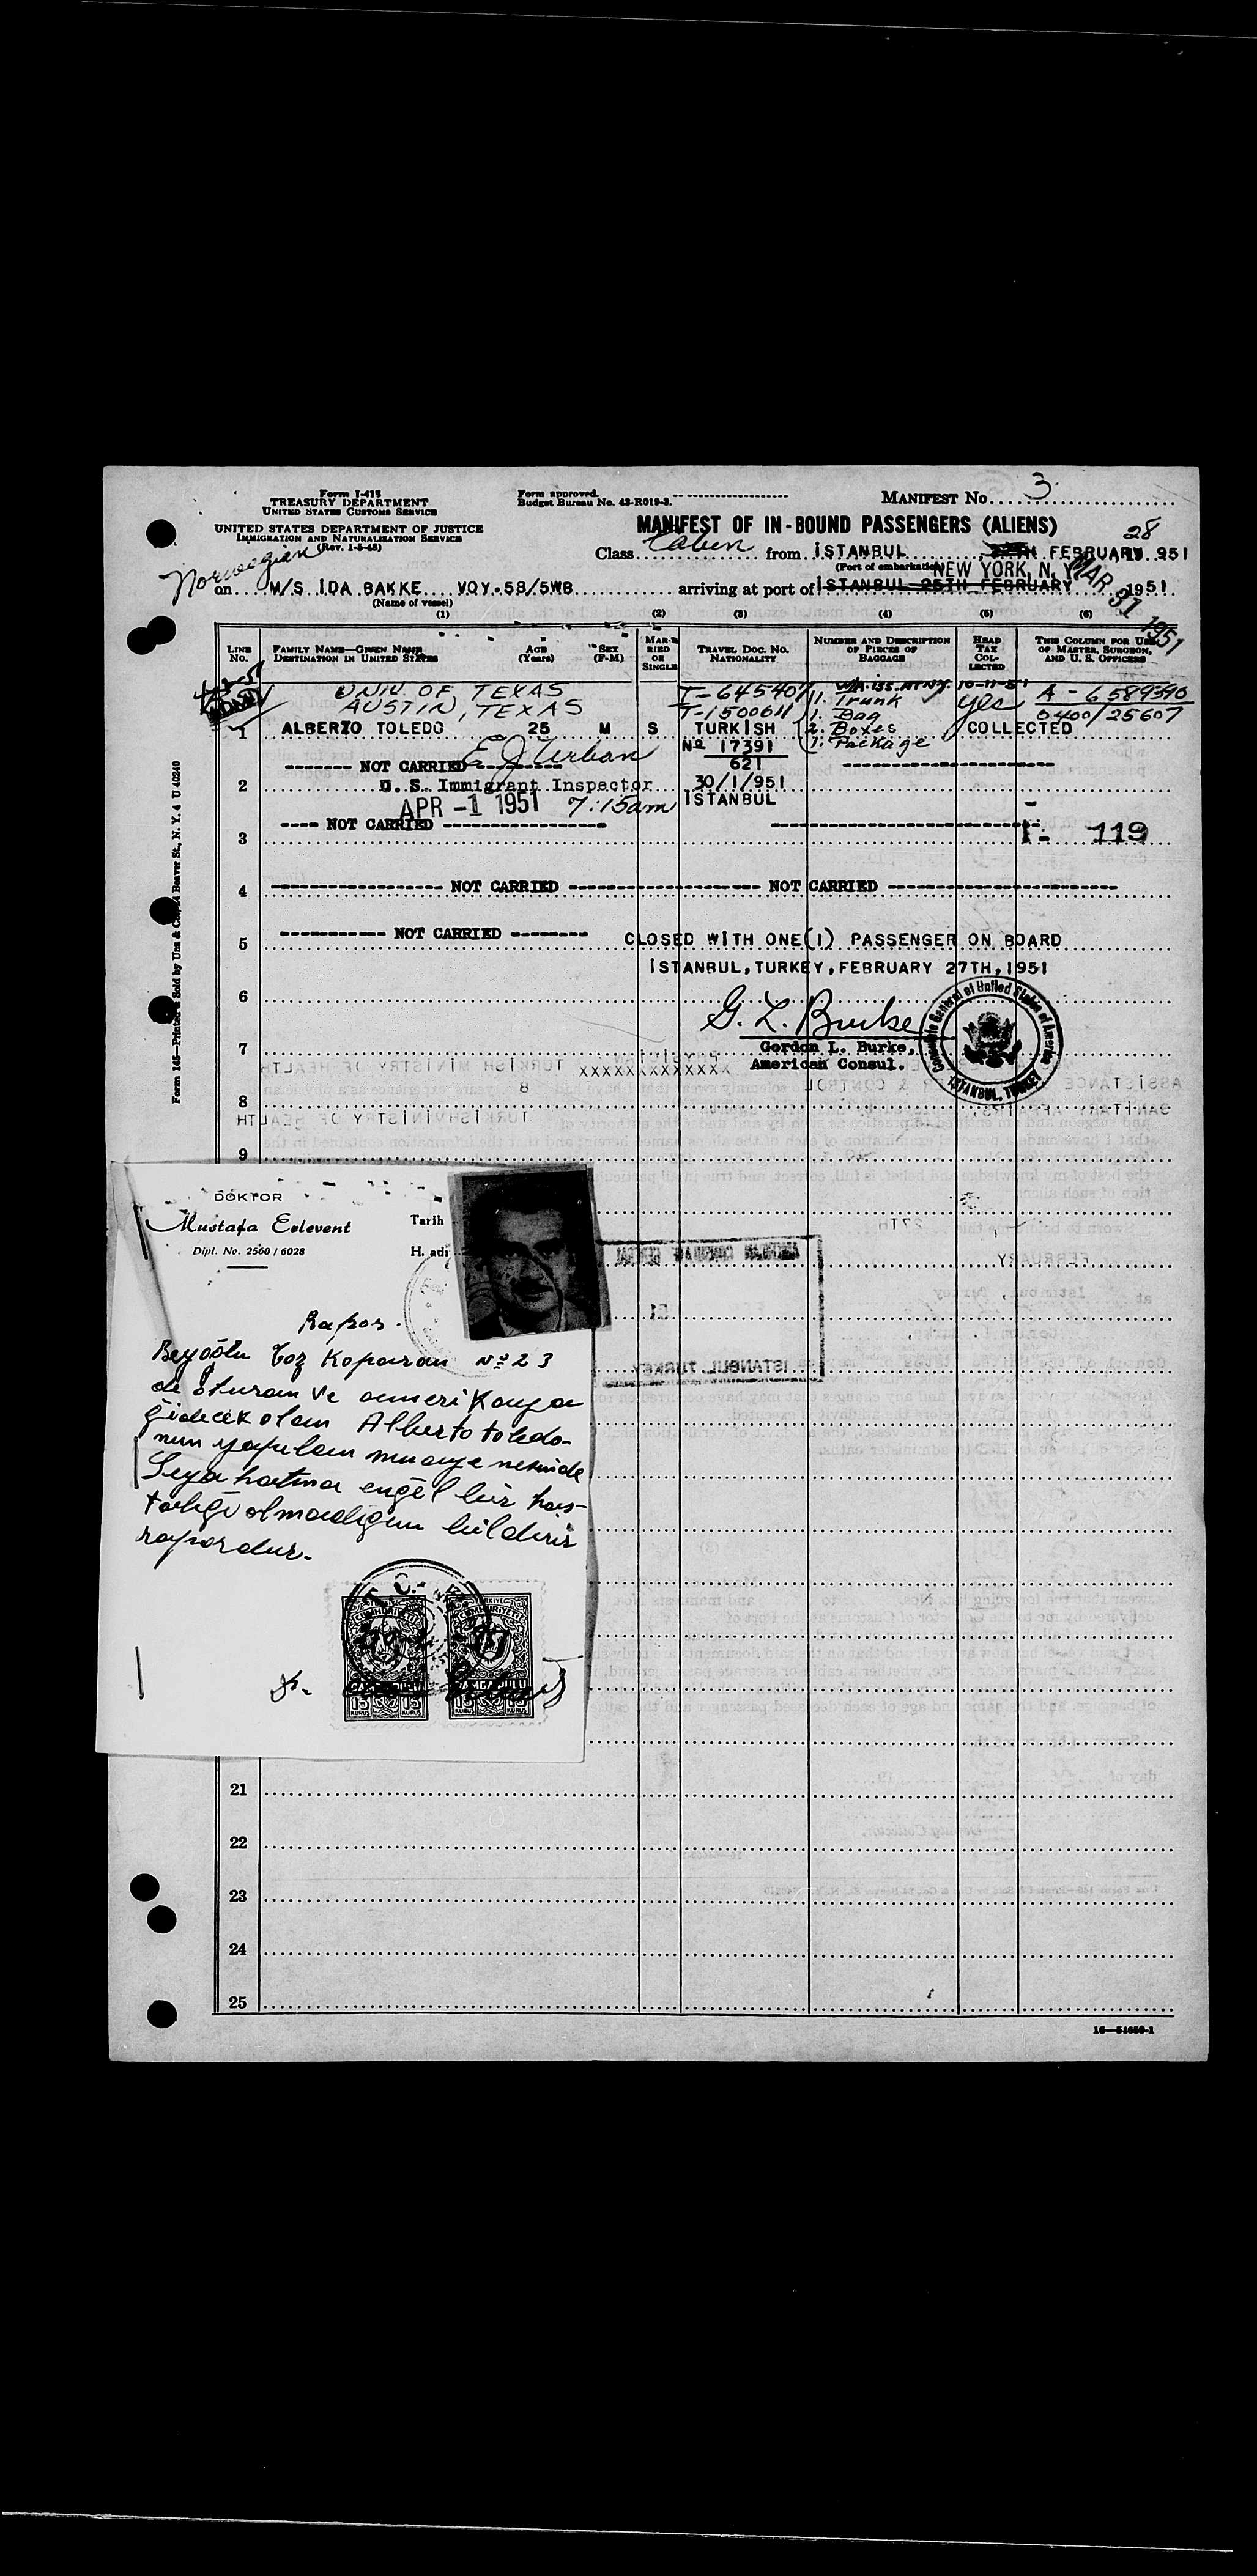 Form I-415
TREASURY DEPARTMENT
UNITED STATES CUSTOMS SERVICE
UNITED STATES DEPARTMENT OF JUSTICE
IMMIGRATION AND NATURALIZATION SERVICE
(Rev. 1-5-48)
Form approved.
Budget Bureau No. 43-R019-3.
MANIFEST No. 3
MANIFEST OF IN-BOUND PASSENGERS (ALIENS)
Class Cabin from ISTANBUL 28 FEBRUARY 951
(Port of embarkation)
Norwegian
on M/S IDA BAKKE VOY.58/5WB arriving at port of ISTANBUL 25TH FEBRUARY 1951
NEW YORK, N. Y. MAR 31 1951
(Name of vessel)
(1) (2) (3) (4) (5) (6)
LINE No. FAMILY NAME—GIVEN NAME DESTINATION IN UNITED STATES AGE (Years) SEX (F-M) MARRIED OR SINGLE TRAVEL DOC. NO. NATIONALITY NUMBER AND DESCRIPTION OF PIECES OF BAGGAGE HEAD TAX COLLECTED THIS COLUMN FOR USE OF MASTER, SURGEON, AND U. S. OFFICERS
UNIV. OF TEXAS T-645407 1. Trunk yes A-6589390
AUSTIN, TEXAS T-1500611 1. Bag 0400/25607
1 ALBERTO TOLEDO 25 M S TURKISH 2. Boxes COLLECTED
No 17391 1. Package
E J Urban 621
NOT CARRIED
2 U. S. Immigrant Inspector 30/1/951
APR -1 1951 7:15am ISTANBUL
NOT CARRIED
3 1- 119
4 NOT CARRIED NOT CARRIED
NOT CARRIED
5 CLOSED WITH ONE(1) PASSENGER ON BOARD
ISTANBUL,TURKEY,FEBRUARY 27TH,1951
6
G. L. Burke
7 Gordon L. Burke,
American Consul.
Consulate General of United States of America
ISTANBUL, TURKEY
8
9
DOKTOR
Mustafa Erlevent
Dipl. No. 2560 / 6028
Tarih
H. adı
Rapor.
Beyoğlu Koparan No 23
de oturan ve amerikaya
gidecek olan Alberto toledo-
nun yapılan muayenesinde
Seyahatına engel bir has-
talığı olmadığını bildirir
rapordur.
Dr.
15 KURUŞ 15
15 KURUŞ 15
21
22
23
24
25
16—54650-1
Form 146—Printed & Sold by Unz & Co., 24 Beaver St., N. Y. 4 U 40240